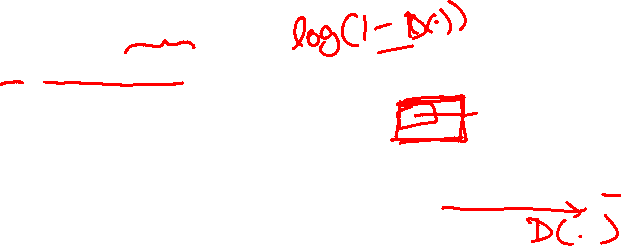 log(1 - D(·))
D(·)